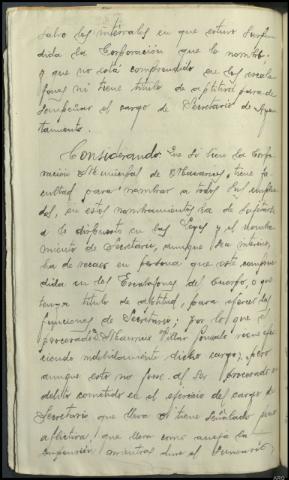 salvo los intérvalos en que estuvo suspen-
dida la Corporación que le nombró
y que no está comprendido en los escala-
fones ni tiene título de aptitud para de-
sempeñar el cargo de Secretario de Ayun-
tamiento.
Considerando: Que si bien la Corpo-
ración Municipal de tiene fa-
cultad para nombrar a todos sus emplea-
dos, en estos nombramientos ha de sujetarse
a lo dispuesto en las Leyes y el nombra-
miento de Secretario, aunque sea interino,
ha de recaer en persona que esté compren-
dida en los Escalafones del Cuerpo, o que
tenga título de aptitud, para ejercer las
funciones de Secretario; por lo que el
procesado D. Villar González viene ejer-
ciendo indebidamente dicho cargo; pero
aunque esto no fuese así, el ser procesado por
delito cometido en el ejercicio del cargo de
Secretario que lleva tiene señalado pena
aflictiva, que lleva como aneja la
suspensión mientras dure el sumario,